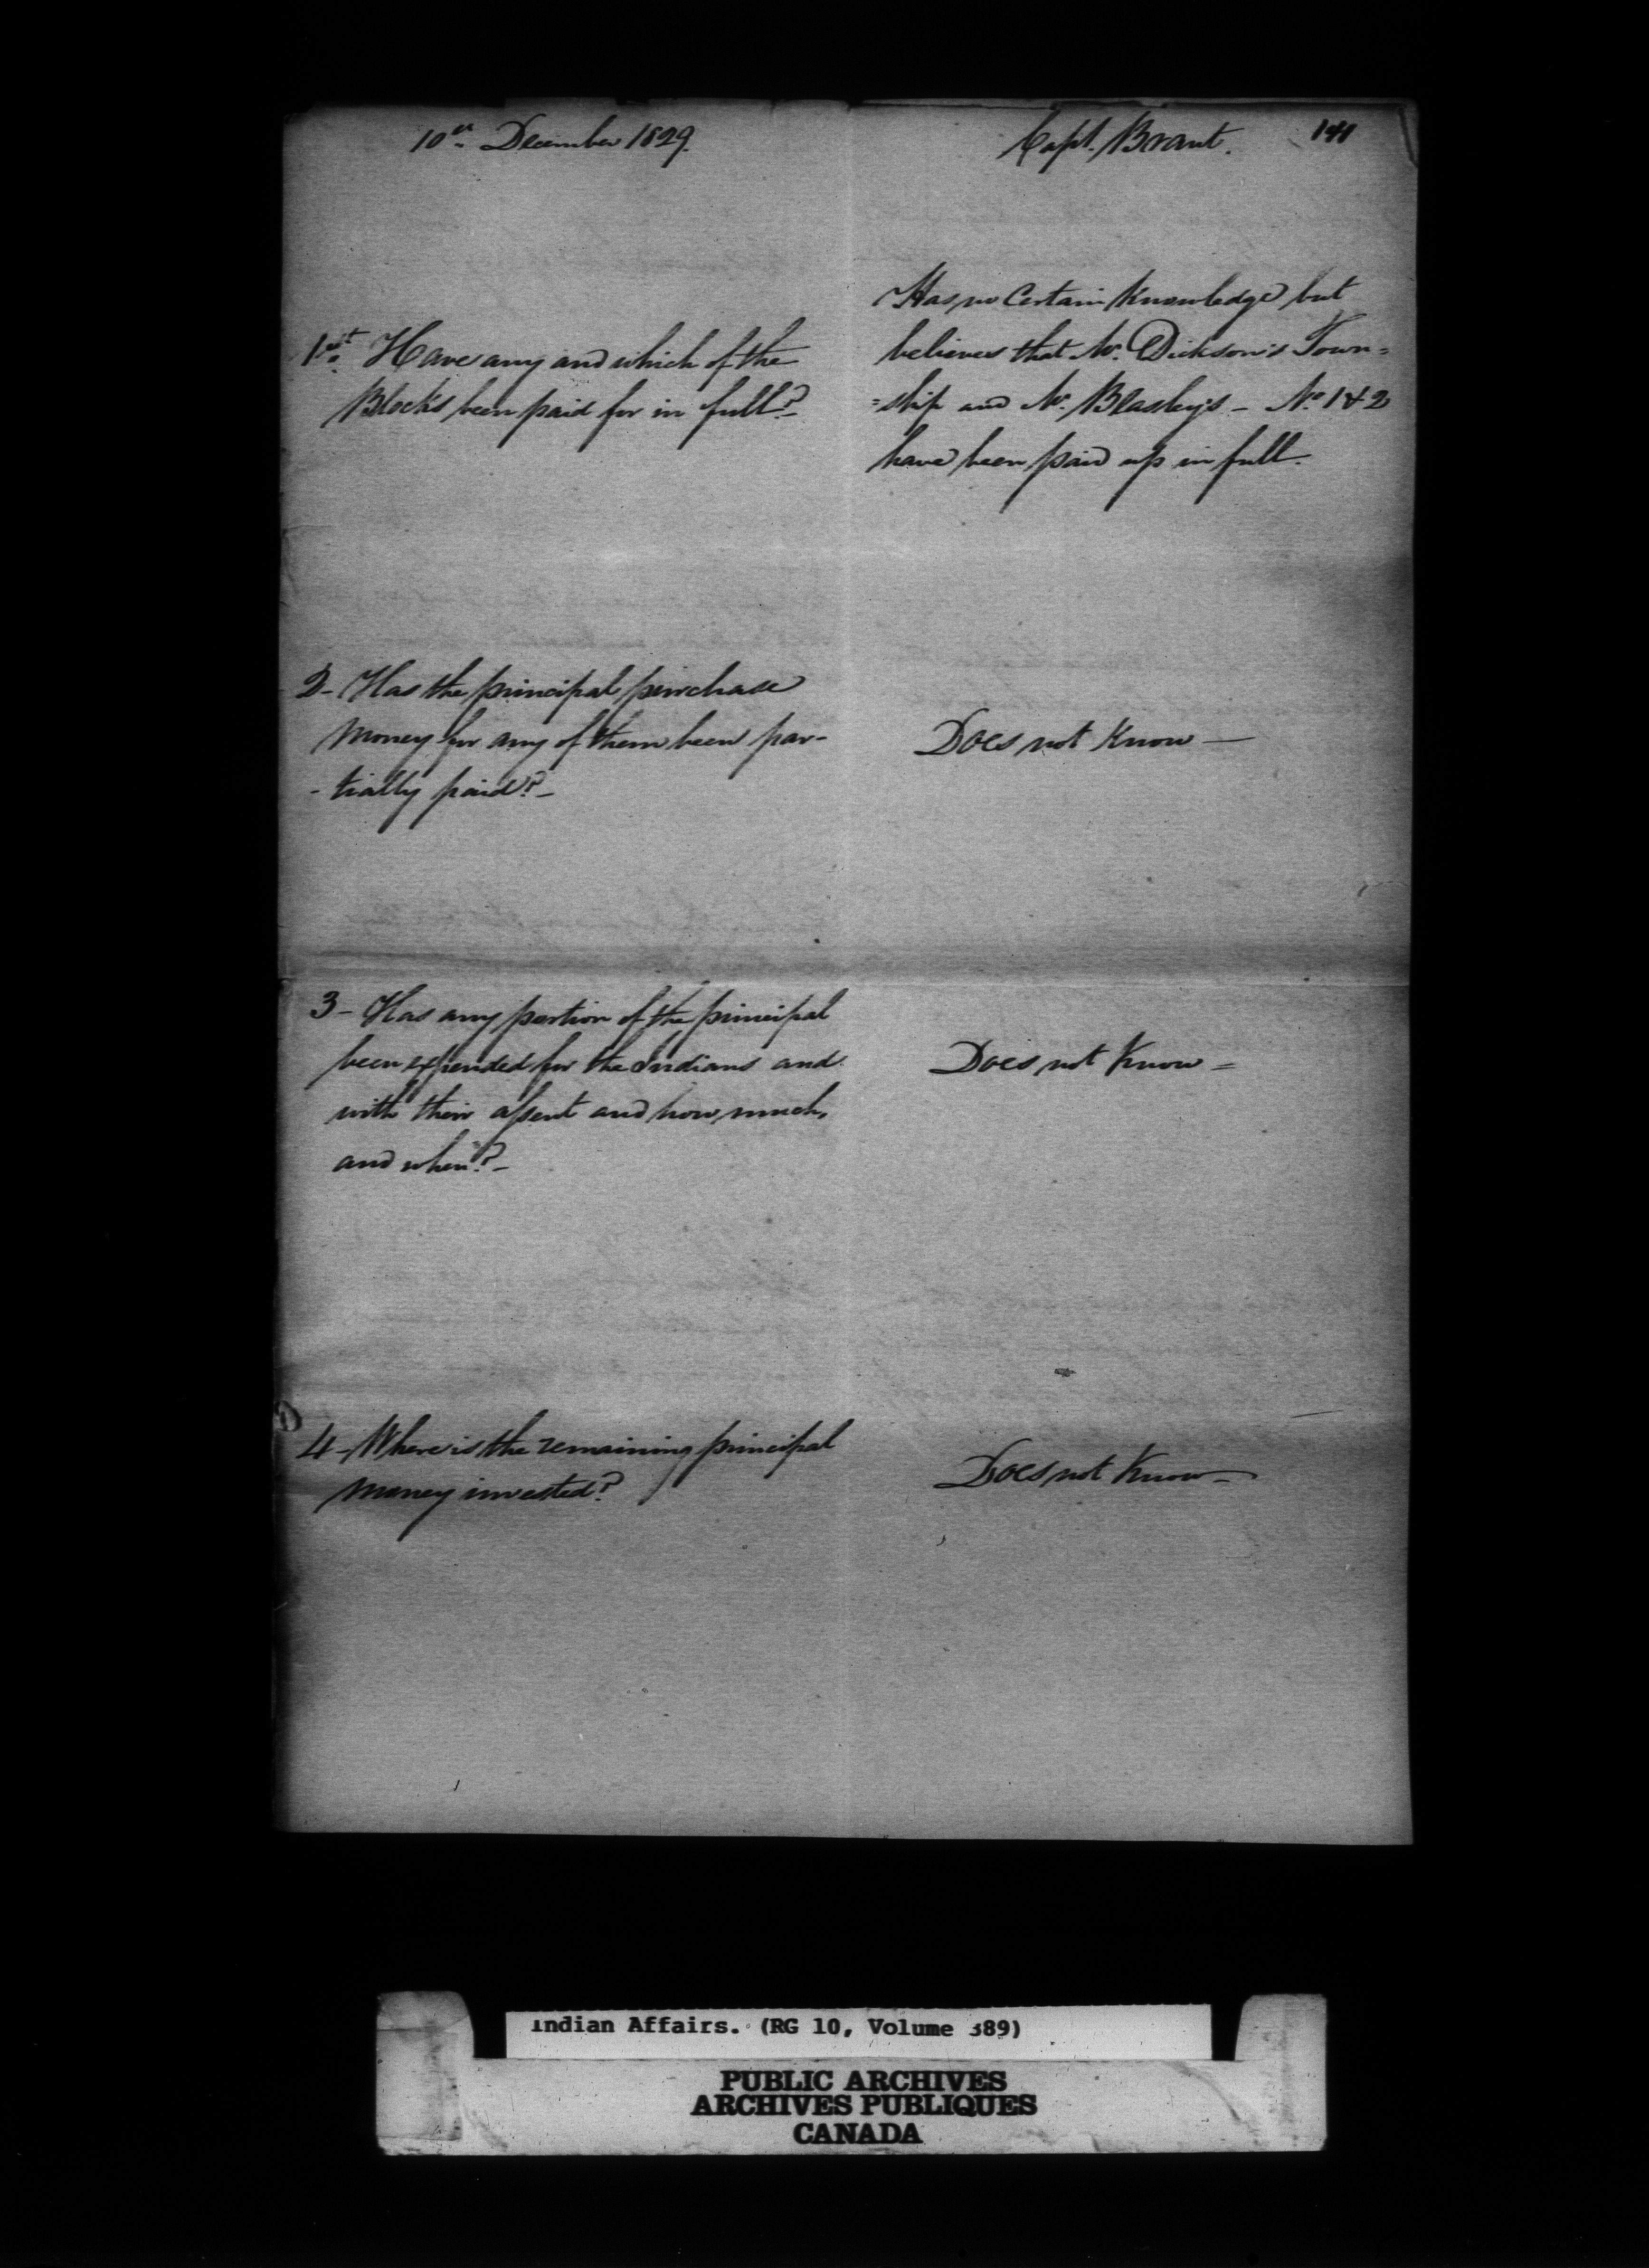 10th December 1829.
Capt. Brant.
141
1st. Have any and which of the
Blocks been paid for in full?-
Has no Certain Knowledge but
believes that Mr. Dickson's Town=
=ship and Mr. Beasley's - No. 1 & 2
have been paid up in full.
2- Has the principal purchase
money for any of them been par-
-tially paid?-
Does not Know-
3- Has any portion of the principal
been expended for the Indians and
with their assent and how much,
and when?-
Does not Know=
4- Where is the remaining principal
money invested?
Does not Know-
Indian Affairs. (RG 10, Volume 389)
PUBLIC ARCHIVES
ARCHIVES PUBLIQUES
CANADA